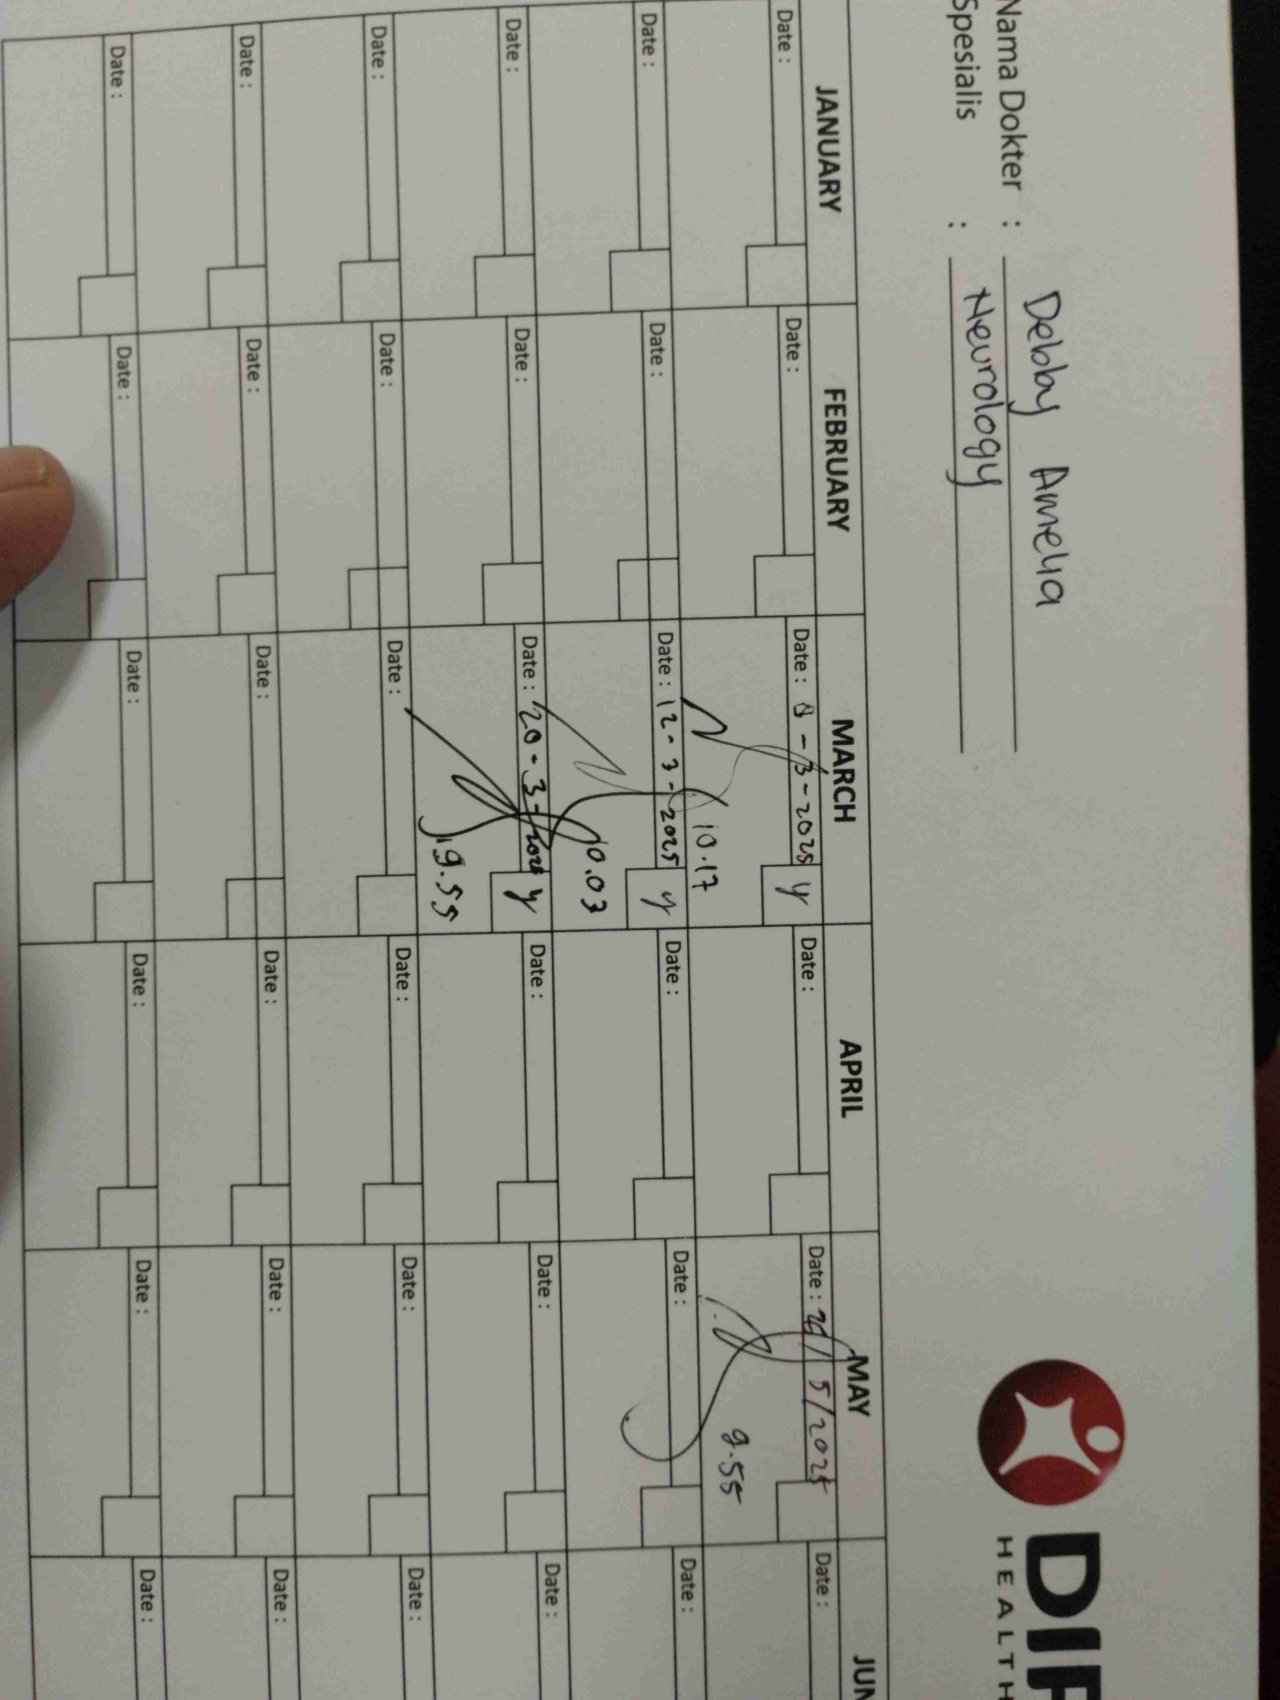 DIF
HEALTH
Nama Dokter : Debby Amelia
Spesialis : Neurology
JANUARY FEBRUARY MARCH APRIL MAY JUN
Date : Date : Date : 8-3-2025 y Date : Date : 5/2025 Date :
10.17 9.55
Date : Date : Date : 12-3-2025 y Date : Date : Date :
10.03
Date : Date : Date : 20-3-2025 y Date : Date : Date :
9.55
Date : Date : Date : Date : Date : Date :
Date : Date : Date : Date : Date : Date :
Date : Date : Date : Date : Date : Date :